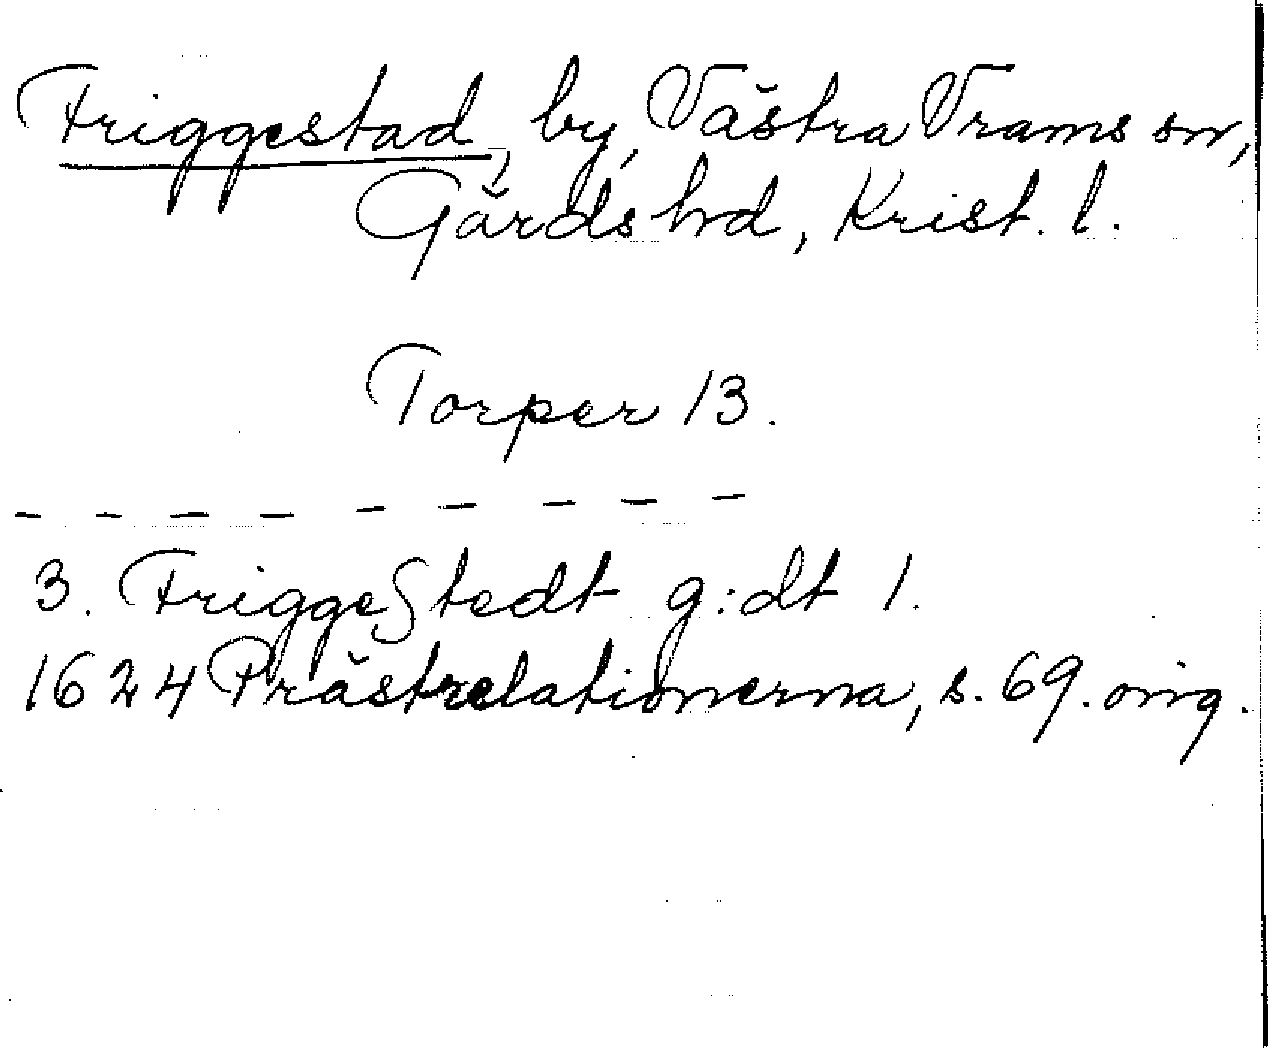 Friggestad, by, Västra Vrams sn,
Gärds hrd, Krist. l.
Torper 13.
- - - - - - - - -
3. FriggeStedt g:dt 1.
1624 Prästrelationerna, s. 69. orig.